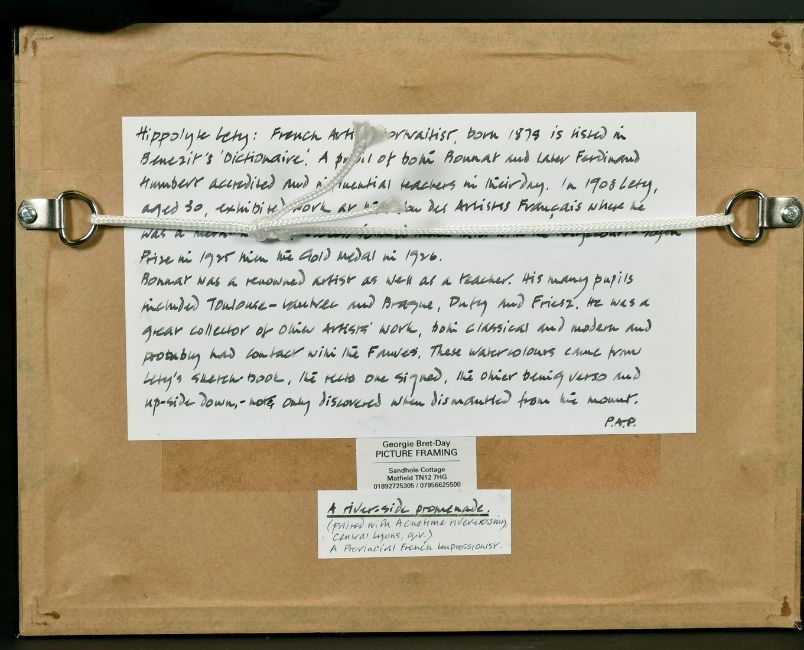 Hippolyte Lety: French Arti Portraitist, born 1878 is listed in
Benezit's 'Dictionaire'. A pupil of both Bonnat and later Ferdinand
Humbert accredited and influential teachers in their day. In 1908 Lety,
aged 30, exhibited work at des Artistes Français where he
was a
Prize in 1925 then the Gold Medal in 1926.
Bonnat was a renowned artist as well as a teacher. His many pupils
included Toulouse-Lautrec and Braque, Dufy and Friesz. He was a
great collector of other Artists' work, both classical and modern and
probably had contact with the Fauves. These watercolours came from
Lety's sketch book, the recto one signed, the other being verso and
up-side down,- note, only discovered when dismantled from the mount.
P.A.P.
Georgie Bret-Day
PICTURE FRAMING
Sandhole Cottage
Matfield TN12 7HG
01892725305 / 07956625500
A river-side promenade.
(paired with A river-crossing,
Central Lyons, q.v.)
A Provincial French Impressionist.